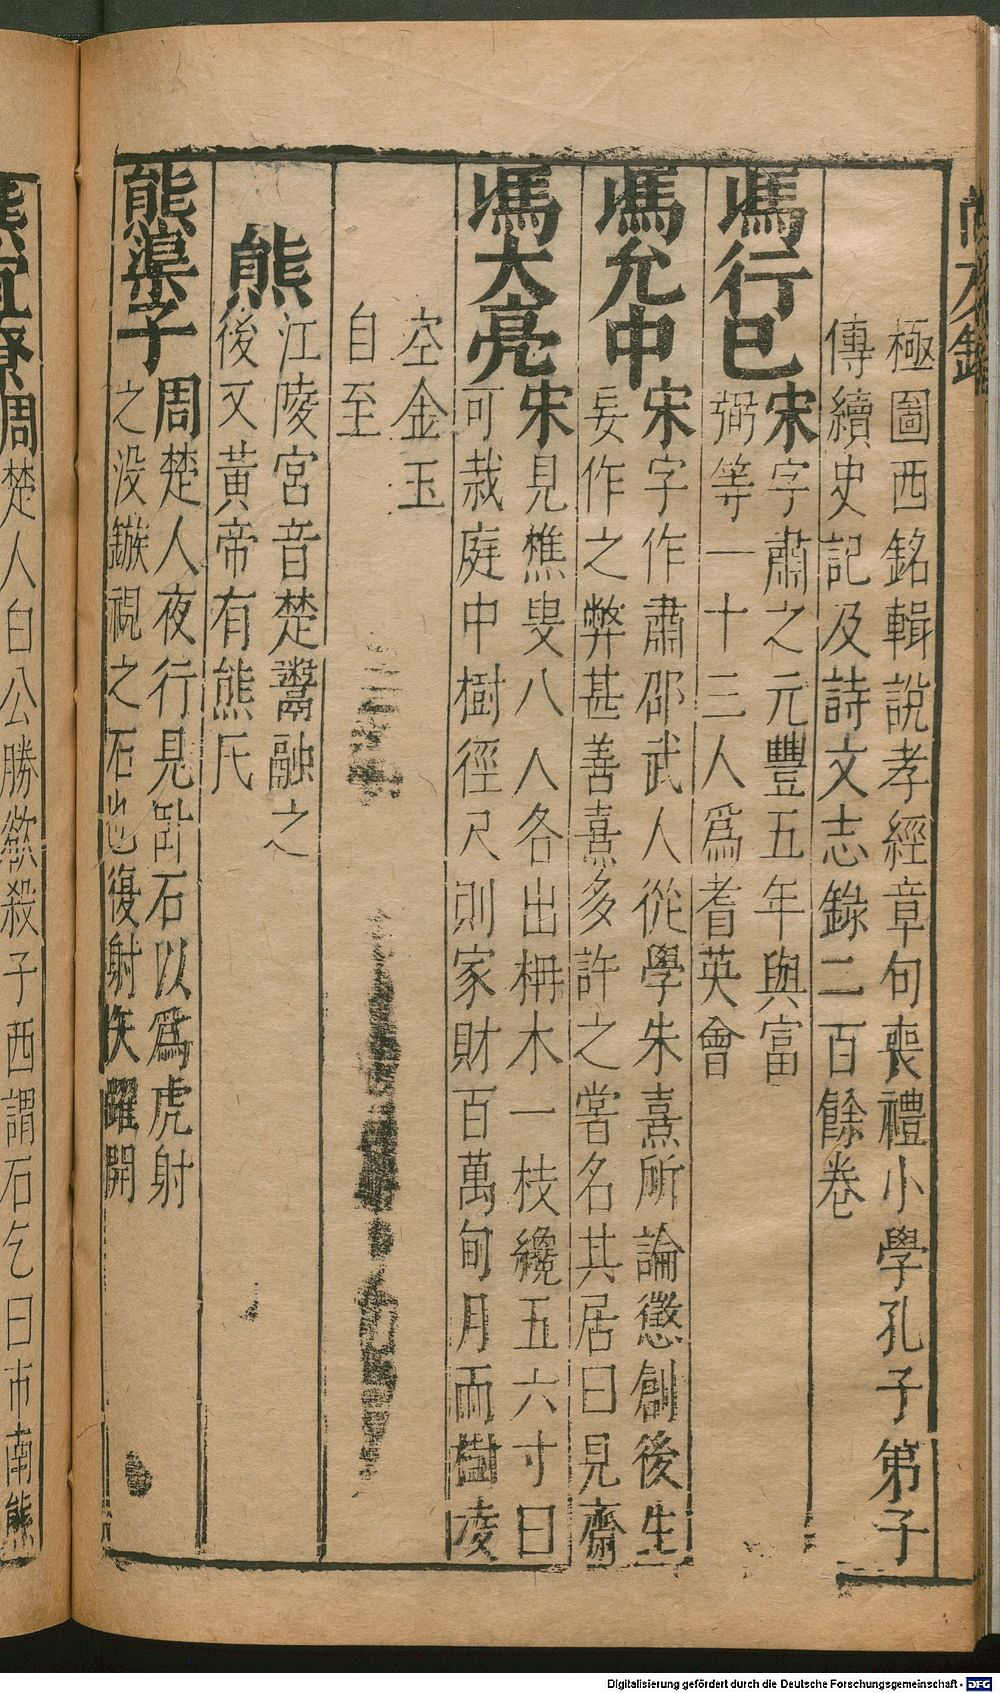 極圖西銘輯說孝經章句喪禮小學孔子弟子
傳續史記及詩文志錄二百餘卷
馮行已宋字肅之元豐五年與富
弼等一十三人爲耆英會
馮允中宋字作肅邵武人從學朱熹所論懲創後生
妄作之弊甚善熹多許之嘗名其居曰見齋
馮大亮宋見樵叟八人各出枏木一枝纔五六寸曰
可栽庭中樹徑尺則家財百萬旬月而樹凌
空金玉
自至
熊江陵宮音楚鬻融之
後又黃帝有熊氏
熊渠子周楚人夜行見卧石以爲虎射
之没鏃視之石也復射矢躍開
熊宜僚周楚人白公勝欲殺子西謂石乞曰市南熊
Digitalisierung gefördert durch die Deutsche Forschungsgemeinschaft - DFG